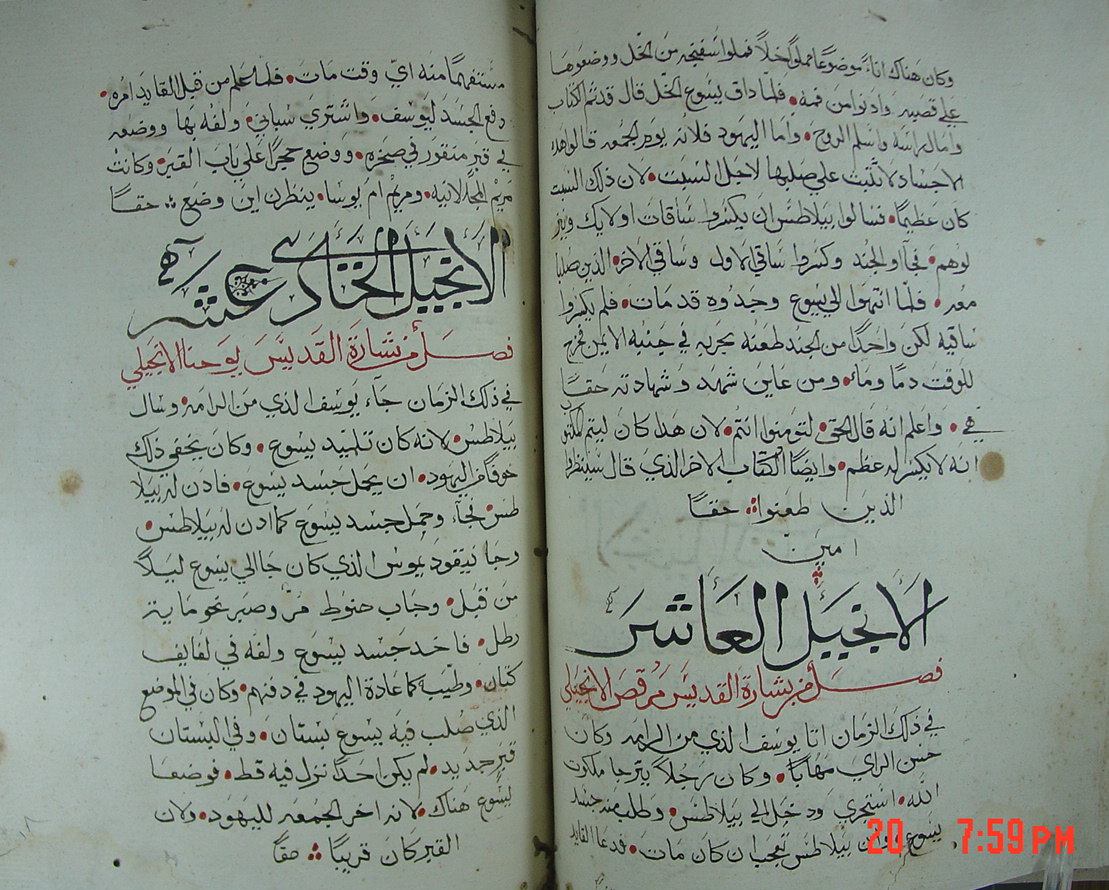 وكان هناك اناءً موضوعًا مملوًا خلاً فملوا سفنجه من الخل ووضعوها
على قصبه وادنوا من فمه • فلما داق يسوع الخل قال قد تم الكتاب
وامال راسه واسلم الروح • واما اليهود فلانه يوم الجمعه قالوا هده
الاجساد لا تلبث على صلبها لاجل السبت • لان ذلك السبت
كان عظيمًا • فسالوا بيلاطس ان يكسروا ساقات اولايك وينز
لوهم • فجآوا الجند وكسروا ساقي الاول وساقي الاخر الذين صلبا
معه • فلما انتهوا الى يسوع وجدوه قد مات • فلم يكسروا
ساقيه لكن واحدًا من الجند طعنه بحربه في جنبه الايمن فخرج
للوقت دمًا وماء • ومن عاين شهد وشهادته حقًا
هي • واعلم انه قال الحق • لتومنوا انتم • لان هدا كان ليتم المكتوب
انه لا يكسر له عظم • وايضًا الكتاب الاخر الذي قال سينظرا
الذين طعنوا حقًا
امين
الانجيل العاشر
فصل من بشارة القديس مرقص الانجيلي
في ذلك الزمان اتا يوسف الذي من الرامه وكان
حسن الراي مهابًا • وكان رجلاً يترجا ملكوت
الله • استجرى ودخل الى بيلاطس • وطلب منه جسد
يسوع • بيلاطس تعجب ان كان مات • فدعا القايد
مستفهمًا منه اي وقت مات • فلما علم من قبل القايد امره •
دفع الجسد ليوسف • واشترى سباني • ولفه بها ووضعه
في قبر منقور في صخره • ووضع حجرًا على باب القبر • وكانت
مريم المجدلانيه • ومريم ام يوسا • ينظرن اين وضع حقًا
الانجيل الحادي عشر
فصل من بشارة القديس يوحنا الانجيلي
في ذلك الزمان جاء يوسف الذي من الرامه • وسال
بيلاطس • لانه كان تلميد يسوع • وكان يخفي ذلك
خوفًا من اليهود • ان يحمل جسد يسوع • فادن له بيلا
طس • فجاء وحمل جسد يسوع كما ادن له بيلاطس •
وجا نيقوديموس الذي كان جا الى يسوع ليلاً
من قبل • وجاب حنوط مر وصبر نحو مايتر
رطل • فاخد جسد يسوع ولفه في لفايف
كتان • وطيب كما عادة اليهود في دفنهم • وكان في الموضع
الذي صلب فيه يسوع بستان • وفي البستان
قبر جديد • لم يكن احدًا نزل فيه قط • فوضعا
يسوع هناك • لانه اخر الجمعه لليهود • ولان
القبر كان قريبًا حقًا
20 7:59 PM